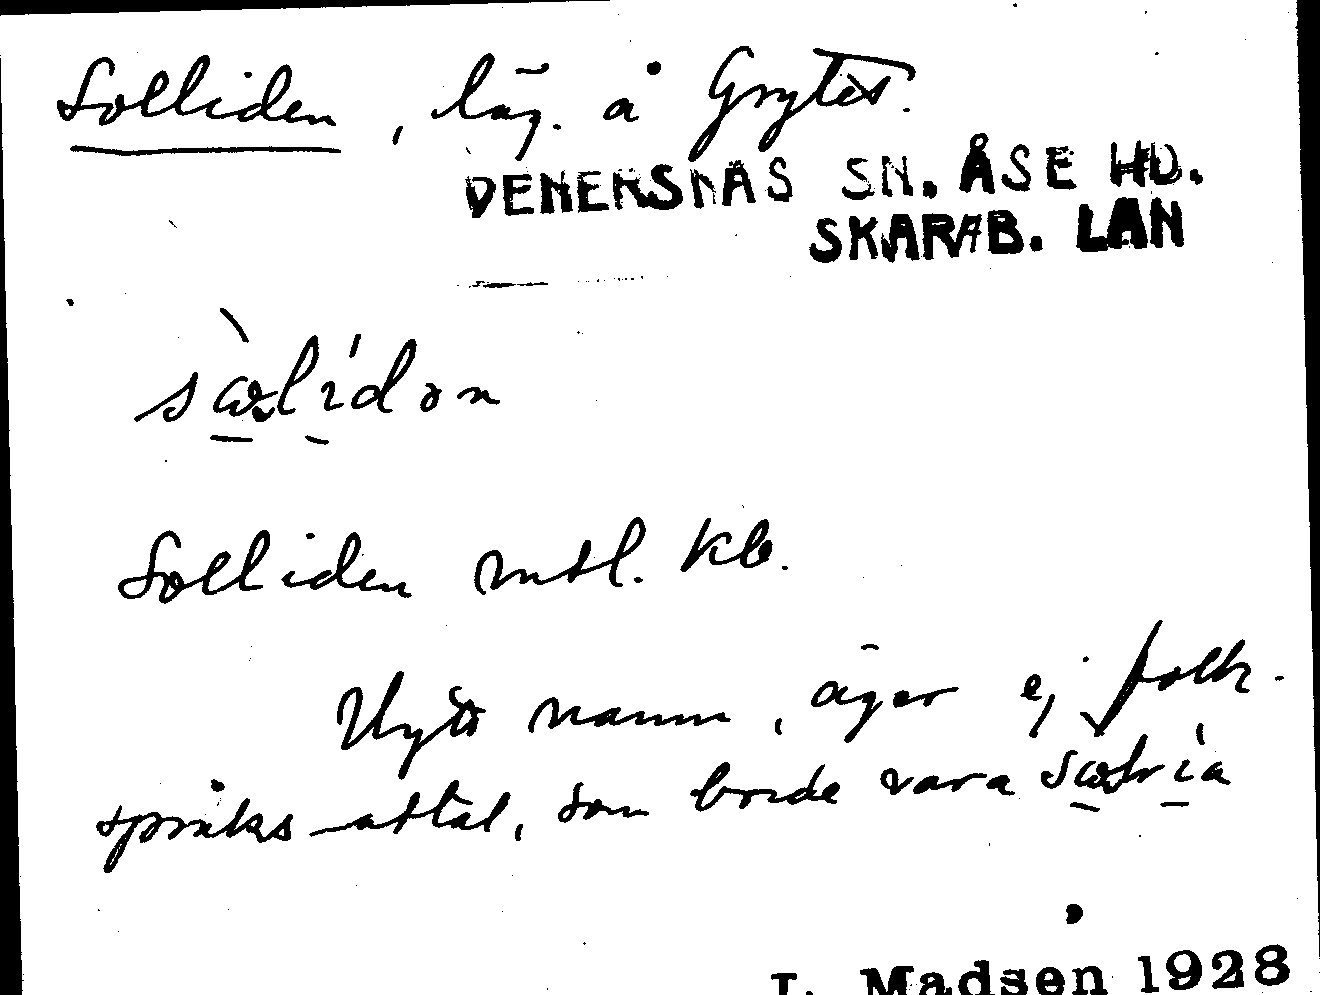 Solliden, läg. å Grytes.
VENERSNÄS SN. ÅSE HD.
SKARAB. LÄN
sæ̀lídən
Solliden mtl. kb.
Nytt namn, äger ej folk-
språks-uttal, som borde vara
L. Madsen 1928